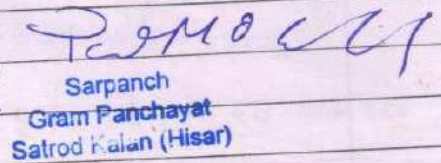 Sarpanch
Gram Panchayat
Satrod Kalan (Hisar)